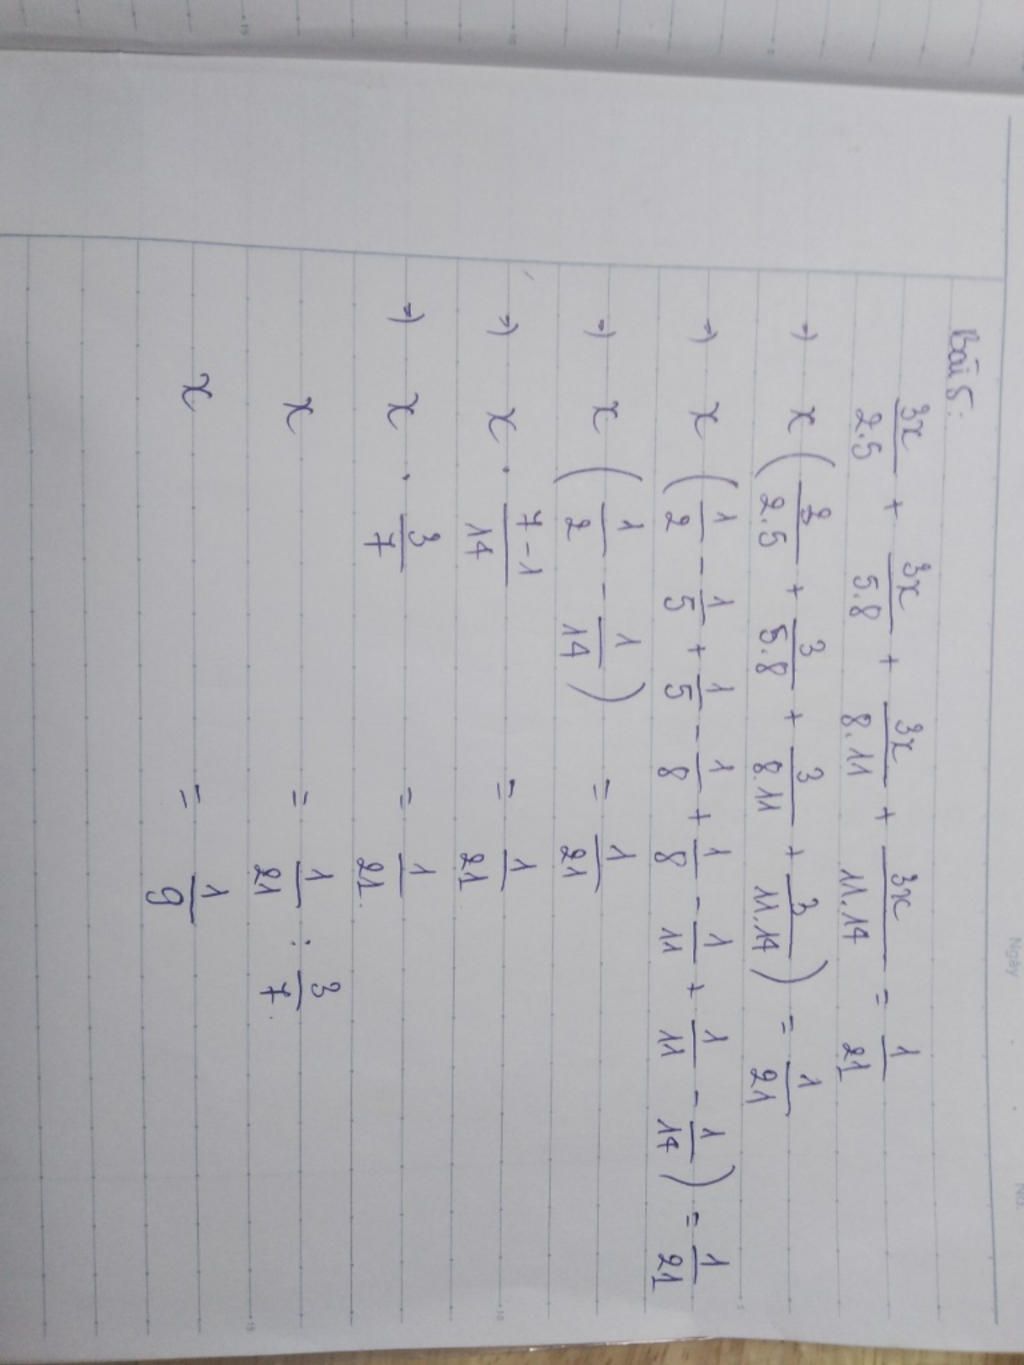 Bài 5:
3x/2.5 + 3x/5.8 + 3x/8.11 + 3x/11.14 = 1/21
=) x (3/2.5 + 3/5.8 + 3/8.11 + 3/11.14) = 1/21
=) x (1/2 - 1/5 + 1/5 - 1/8 + 1/8 - 1/11 + 1/11 - 1/14) = 1/21
=) x (1/2 - 1/14) = 1/21
=) x . 7-1/14 = 1/21
=) x . 3/7 = 1/21
x = 1/21 : 3/7
x = 1/9
Ngày
No.